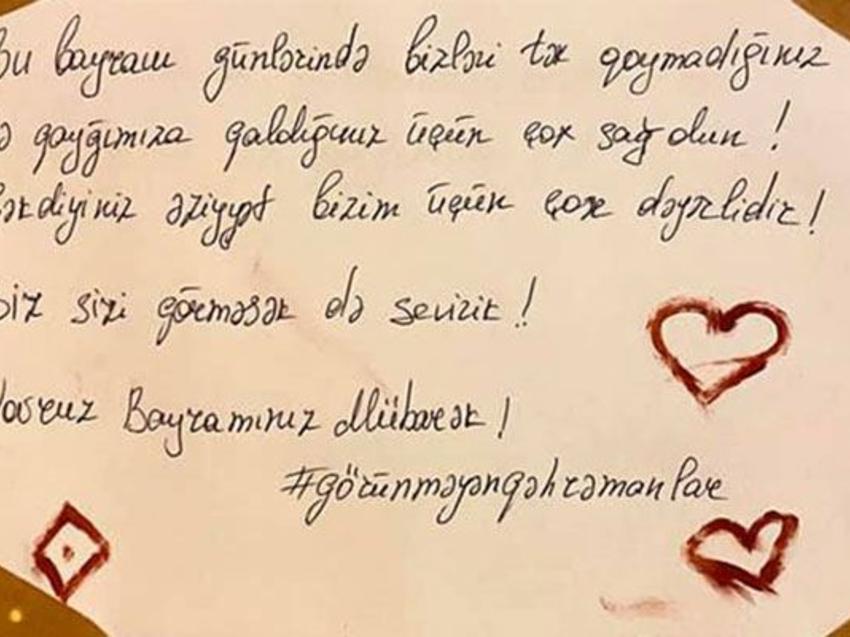 bu bayram günlərində bizləri tək qoymadığınız
ə qayğımıza qaldığınız üçün çox sağ olun!
əkdiyiniz əziyyət bizim üçün çox dəyərlidir!
biz sizi görməsək də sevirik!
ovruz Bayramınız Mübarək!
#görünməyənqəhrəmanlar